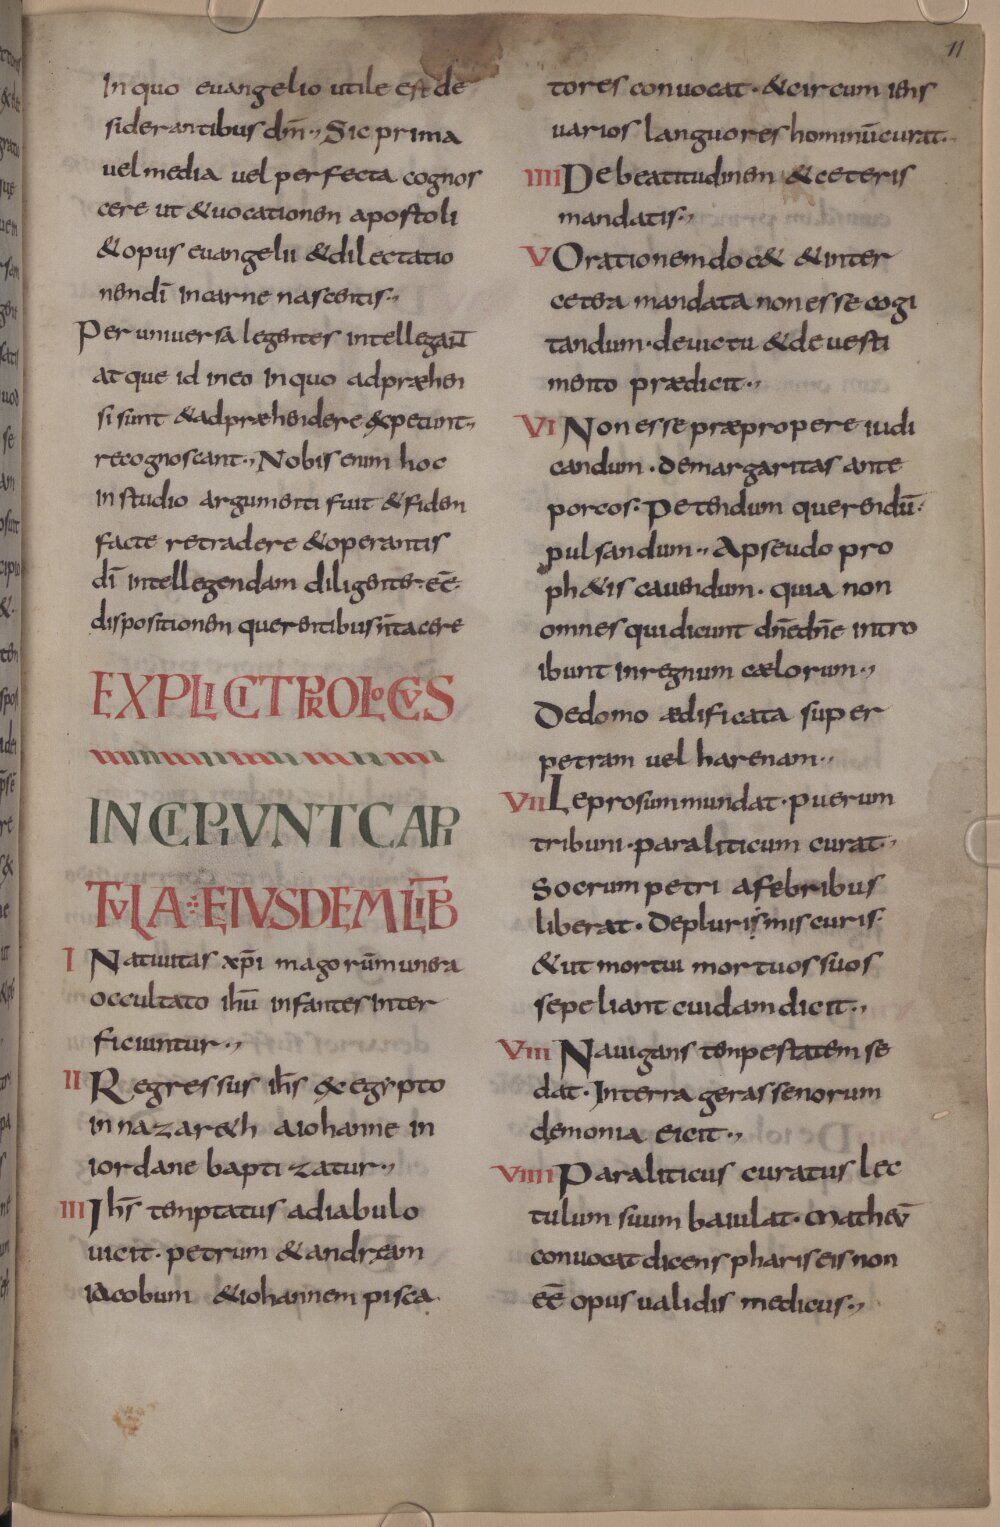 11
In quo euangelio utile est de
siderantibus dm̄., Sic prima
uel media uel perfecta cognos
cere ut & uocationem apostoli
& opus euangelii & dilectatio
nendī in carne nascentis.,
Per uniuersa legentes intellegaū
at que id in eo in quo adpræhen
si sunt & adpræhendere expetunt.,
recognoscant., Nobis enim hoc
in studio argumenti fuit & fidem
facte retradere & operantis
dī intellegendam diligenter. eē.
dispositionem querentibus n̄ tacere
EXPLICIT PROLOGUS
INCIPIVNT CAPI
TVLA EIVSDEM LIB̄
I Natiuitas xp̄i magorū munera
occultato ihū infantes inter
ficiuntur.,
II Regressus ih̄s ex egypto
in nazareth a iohanne in
iordane baptizatur.,
III Ih̄s temptatus a diabulo
uicit. petrum & andream
iacobum & iohannem pisca
tores conuocat. & circum iens
uarios languores hominū curat.
IIII De beatitudinem & ceteris
mandatis.,
V Orationem doc& & inter
cetera mandata non esse cogi
tandum. de uictu & de uesti
mento prædicit.,
VI Non esse præpropere iudi
candum. de margaritas ante
porcos. Petendum querendū.
pulsandum., A pseudo pro
ph&is cauendum. quia non
omnes qui dicunt dn̄e dn̄e intro
ibunt in regnum cælorum.,
De domo ædificata super
petram uel harenam.,
VII Leprosum mundat. puerum
tribuni. paraliticum curat.,
Socrum petri a febribus
liberat. De plurismis curis.
& ut mortui mortuos suos
sepeliant cuidam dicit.,
VIII Nauigans tempestatem se
dat. In terra gerassenorum
demonia eicit.,
VIIII Paraliticus curatus lec
tulum suum baiulat. Matheū
conuocat dicens phariseis non
eē opus ualidis medicus.,